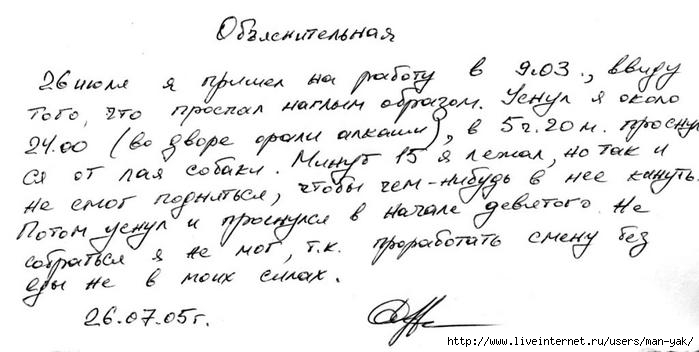 Объяснительная
26 июля я пришел на работу в 9.03., ввиду
того, что проспал наглым образом. Уснул я около
24.00 (во дворе орали алкаши), в 5ч.20м. просну
ся от лая собаки. Минут 15 я лежал, но так и
не смог подняться, чтобы чем-нибудь в нее кинуть.
Потом уснул и проснулся в начале девятого. Не
собраться я не мог, т.к. проработать смену без
еды не в моих силах.
26.07.05г.
http://www.liveinternet.ru/users/man-yak/